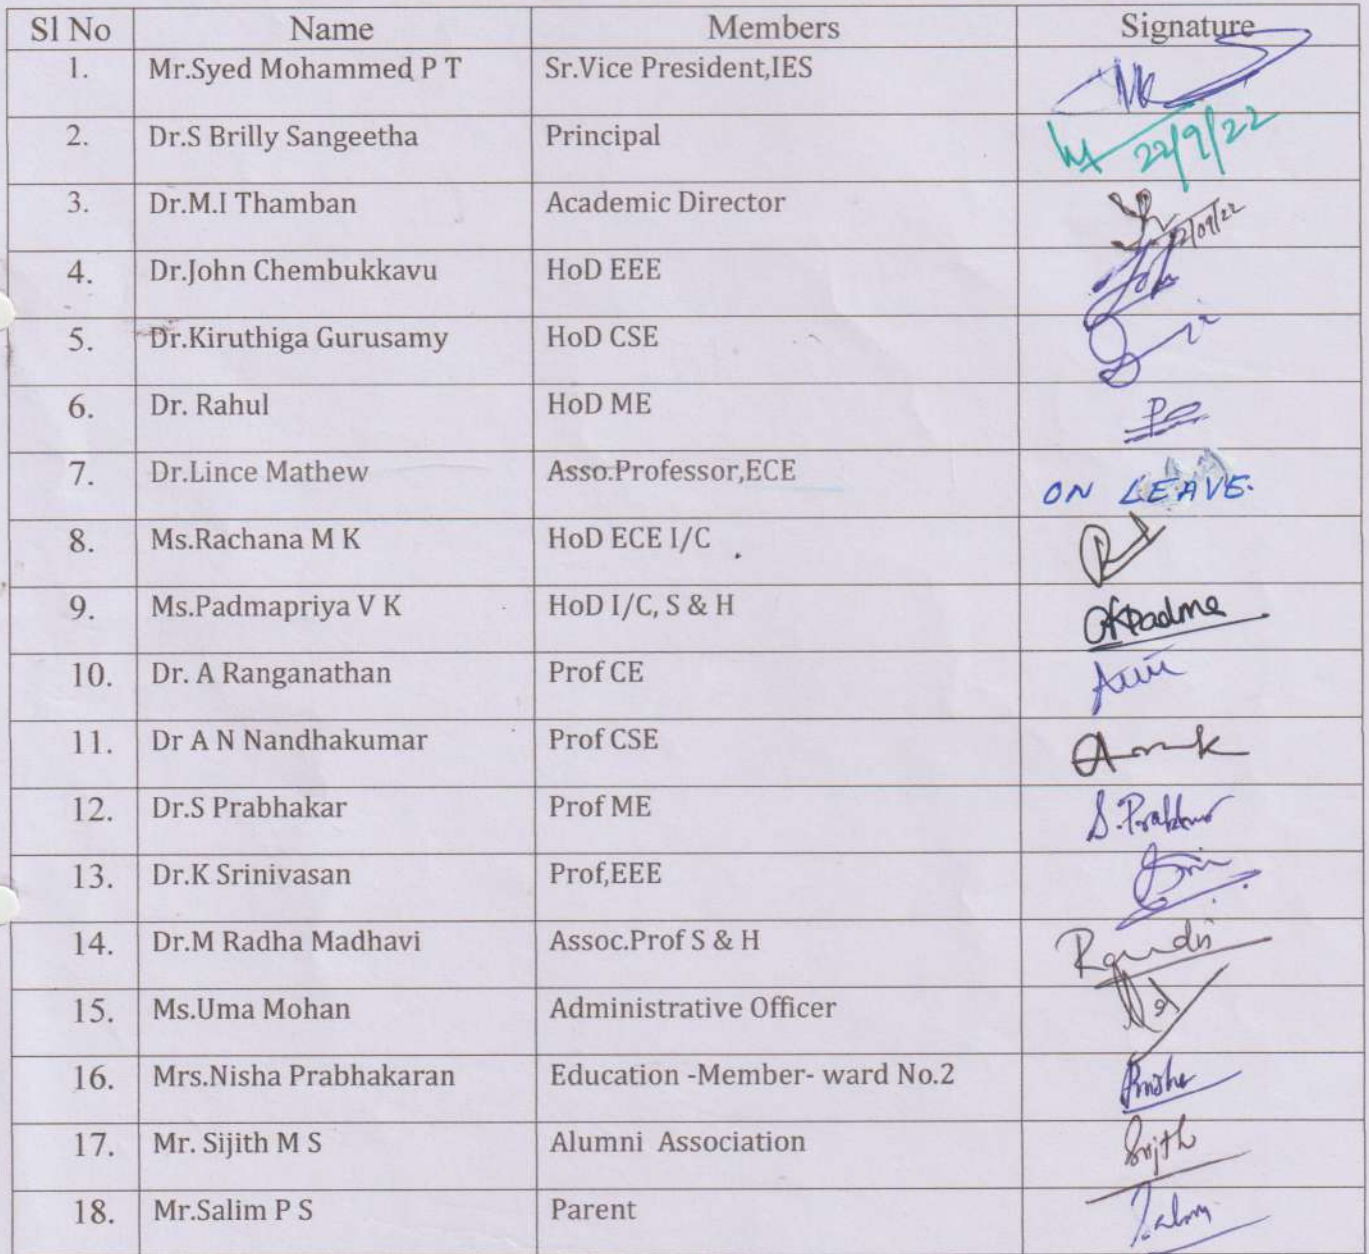 Sl No Name Members Signature
1. Mr.Syed Mohammed P T Sr.Vice President,IES
2. Dr.S Brilly Sangeetha Principal 22/9/22
3. Dr.M.I Thamban Academic Director
4. Dr.John Chembukkavu HoD EEE John
5. Dr.Kiruthiga Gurusamy HoD CSE
6. Dr. Rahul HoD ME
7. Dr.Lince Mathew Asso.Professor,ECE ON LEAVE.
8. Ms.Rachana M K HoD ECE I/C
9. Ms.Padmapriya V K HoD I/C, S & H
10. Dr. A Ranganathan Prof CE
11. Dr A N Nandhakumar Prof CSE
12. Dr.S Prabhakar Prof ME
13. Dr.K Srinivasan Prof,EEE
14. Dr.M Radha Madhavi Assoc.Prof S & H
15. Ms.Uma Mohan Administrative Officer
16. Mrs.Nisha Prabhakaran Education -Member- ward No.2
17. Mr. Sijith M S Alumni Association Sijith
18. Mr.Salim P S Parent